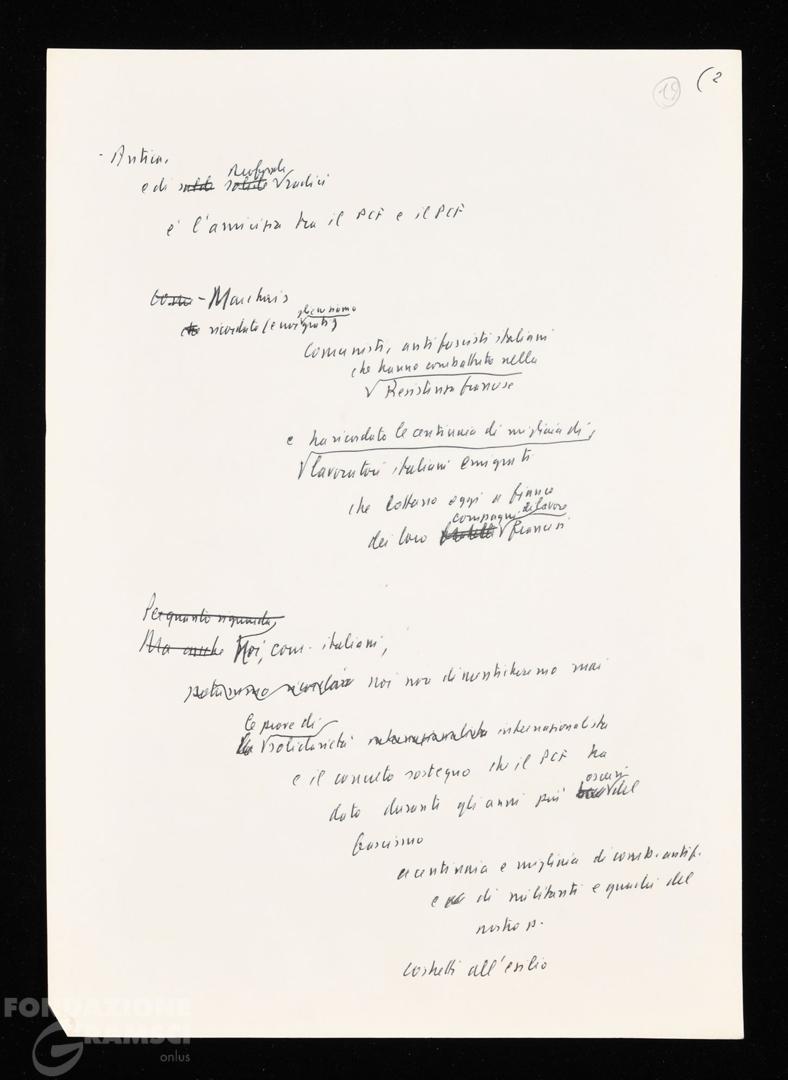 19 (2
- Antica,
profonde
e di salde solide radici
è l'amicizia tra il PCF e il PCF
Come - Marchais
gliene siamo
ha ricordato (e noi grati)
Comunisti, antifascisti italiani
che hanno combattuto nella
Resistenza francese
e ha ricordato le centinaia di migliaia di
lavoratori italiani emigrati
che lottano oggi a fianco
compagni di lavoro
dei loro fratelli francesi
Per quanto riguarda
Ma anche Noi, com. italiani,
noi non dimenticheremo mai
le prove di
la solidarietà internazionalista internazionalista
e il concreto sostegno che il PCF ha
oscuri
dato durante gli anni più del
fascismo
a centinaia e migliaia di comb. antif.
e di militanti e quadri del
nostro p.
costretti all'esilio
FONDAZIONE
GRAMSCI
onlus